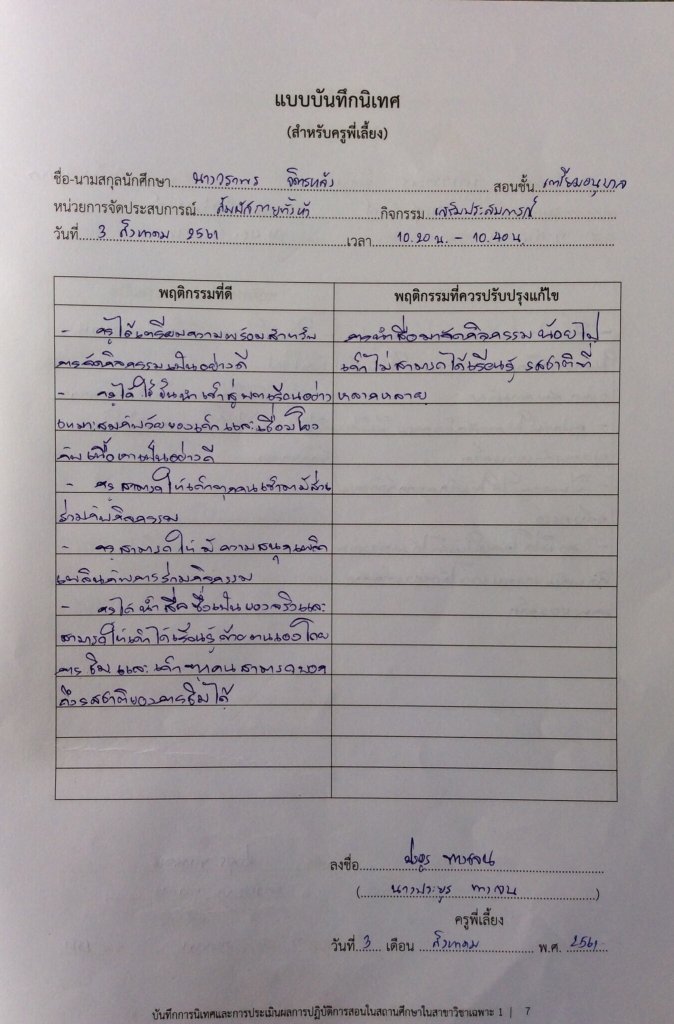 แบบบันทึกนิเทศ
(สำหรับครูพี่เลี้ยง)
ชื่อ-นามสกุลนักศึกษา นางวราพร จิตรหลัง สอนชั้น เตรียมอนุบาล
หน่วยการจัดประสบการณ์ สัมผัสทั้งห้า กิจกรรม เสริมประสบการณ์
วันที่ 3 สิงหาคม 2561 เวลา 10.20 น. - 10.40 น.
พฤติกรรมที่ดี พฤติกรรมที่ควรปรับปรุงแก้ไข
- ครูได้เตรียมความพร้อมสำหรับ การนำสื่อมาจัดกิจกรรมน้อยไป
การจัดกิจกรรมเป็นอย่างดี เด็กไม่สามารถได้เรียนรู้รสชาติที่
- ครูได้ใช้ขั้นนำเข้าสู่บทเรียนอย่าง หลากหลาย
เหมาะสมกับวัยของเด็กและเชื่อมโยง
กับเนื้อหาเป็นอย่างดี
- ครูสามารถให้เด็กทุกคนเข้ามามีส่วน
ร่วมกับกิจกรรม
- ครูสามารถให้มีความสนุกเพลิด
เพลินกับการร่วมกิจกรรม
- ครูได้นำสื่อซึ่งเป็นของจริงและ
สามารถให้เด็กได้เรียนรู้ด้วยตนเองโดย
การชิมและเด็กทุกคนสามารถบอก
ถึงรสชาติของการชิมได้
ลงชื่อ
(นางประยูร)
ครูพี่เลี้ยง
วันที่ 3 เดือน สิงหาคม พ.ศ. 2561
บันทึกการนิเทศและการประเมินผลการปฏิบัติการสอนในสถานศึกษาในสาขาวิชาเฉพาะ 1 | 7